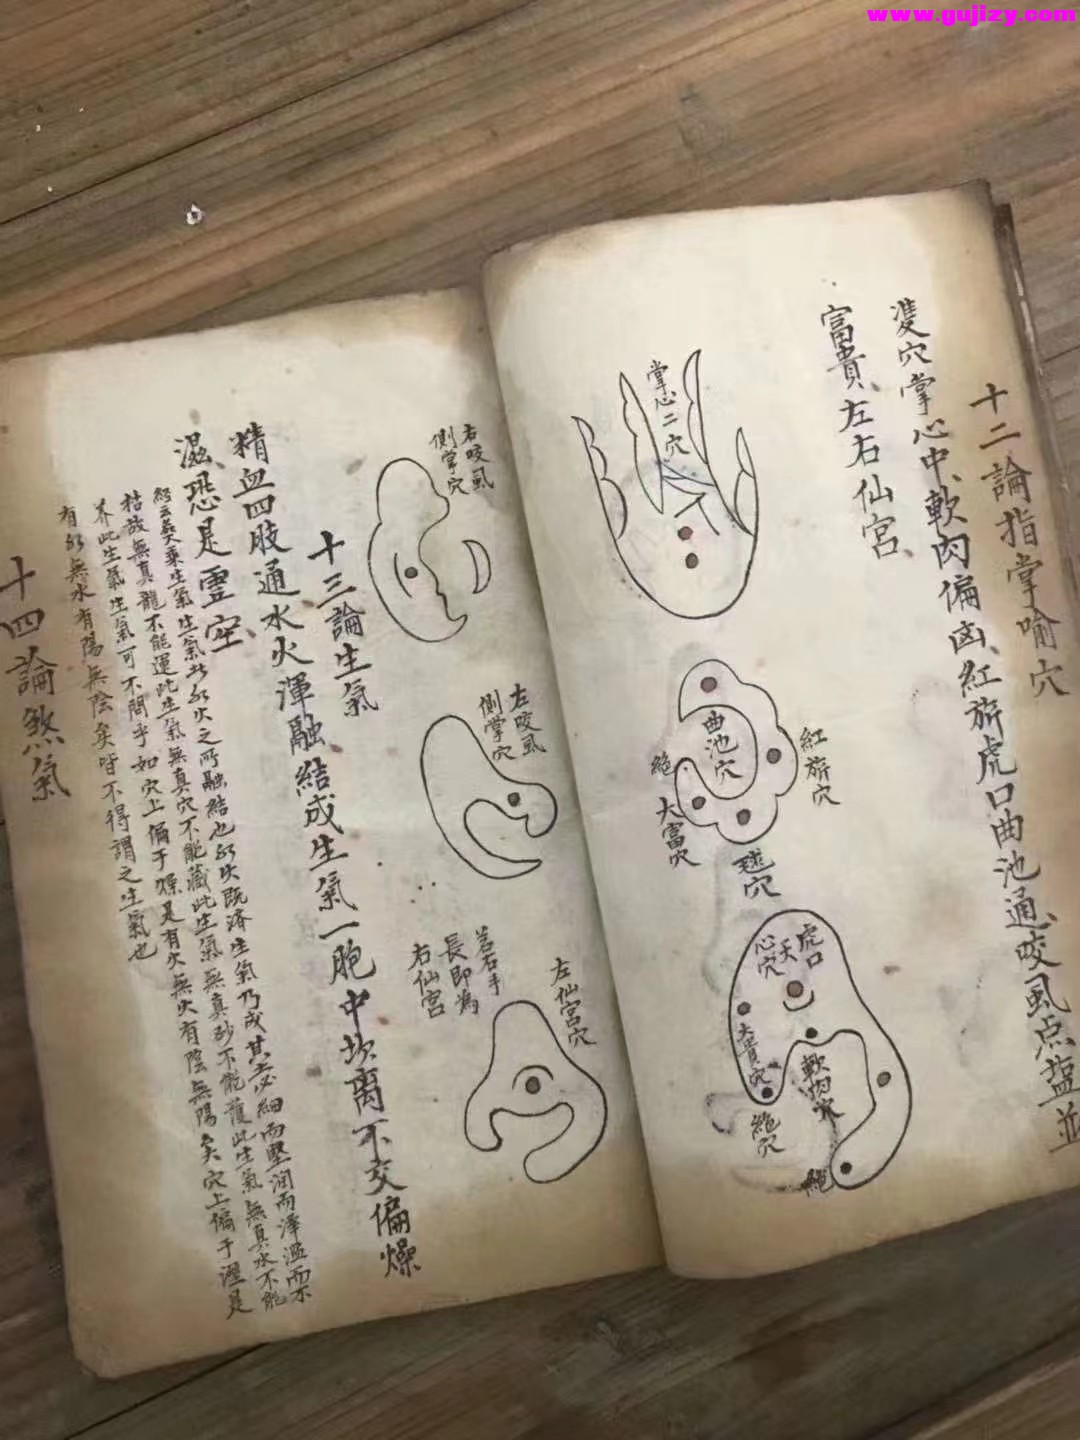 www.gujizy.com
十二論指掌喻穴
雙穴掌心中、軟肉偏凶、紅旂虎口曲池通、咬虱点盐並
富貴、左右仙宮、
掌心二穴
曲池穴
紅旂穴
絕
大富穴
毬穴
虎口
天
心穴
大貴穴
軟肉穴
絕穴
絕
右咬虱
側掌穴
左咬虱
側掌穴
左仙宮穴
若右手
長即為
右仙宮
十三論生氣
精血四肢通水火渾融、結成生氣一胞中坎离不交偏燥
濕、恐是虛空、
經云葬乘生氣生氣者水火之所融結也水火既済生氣乃成其土必細而堅润而泽濕而不
枯故無真龍不能運此生氣無真穴不能藏此生氣無真砂不能護此生氣無真水不能
界此生氣生氣可不問乎如穴上偏于燥是有火無水有陰無陽矣穴上偏于溼是
有水無火有陽無陰矣皆不得謂之生氣也
十四論煞氣